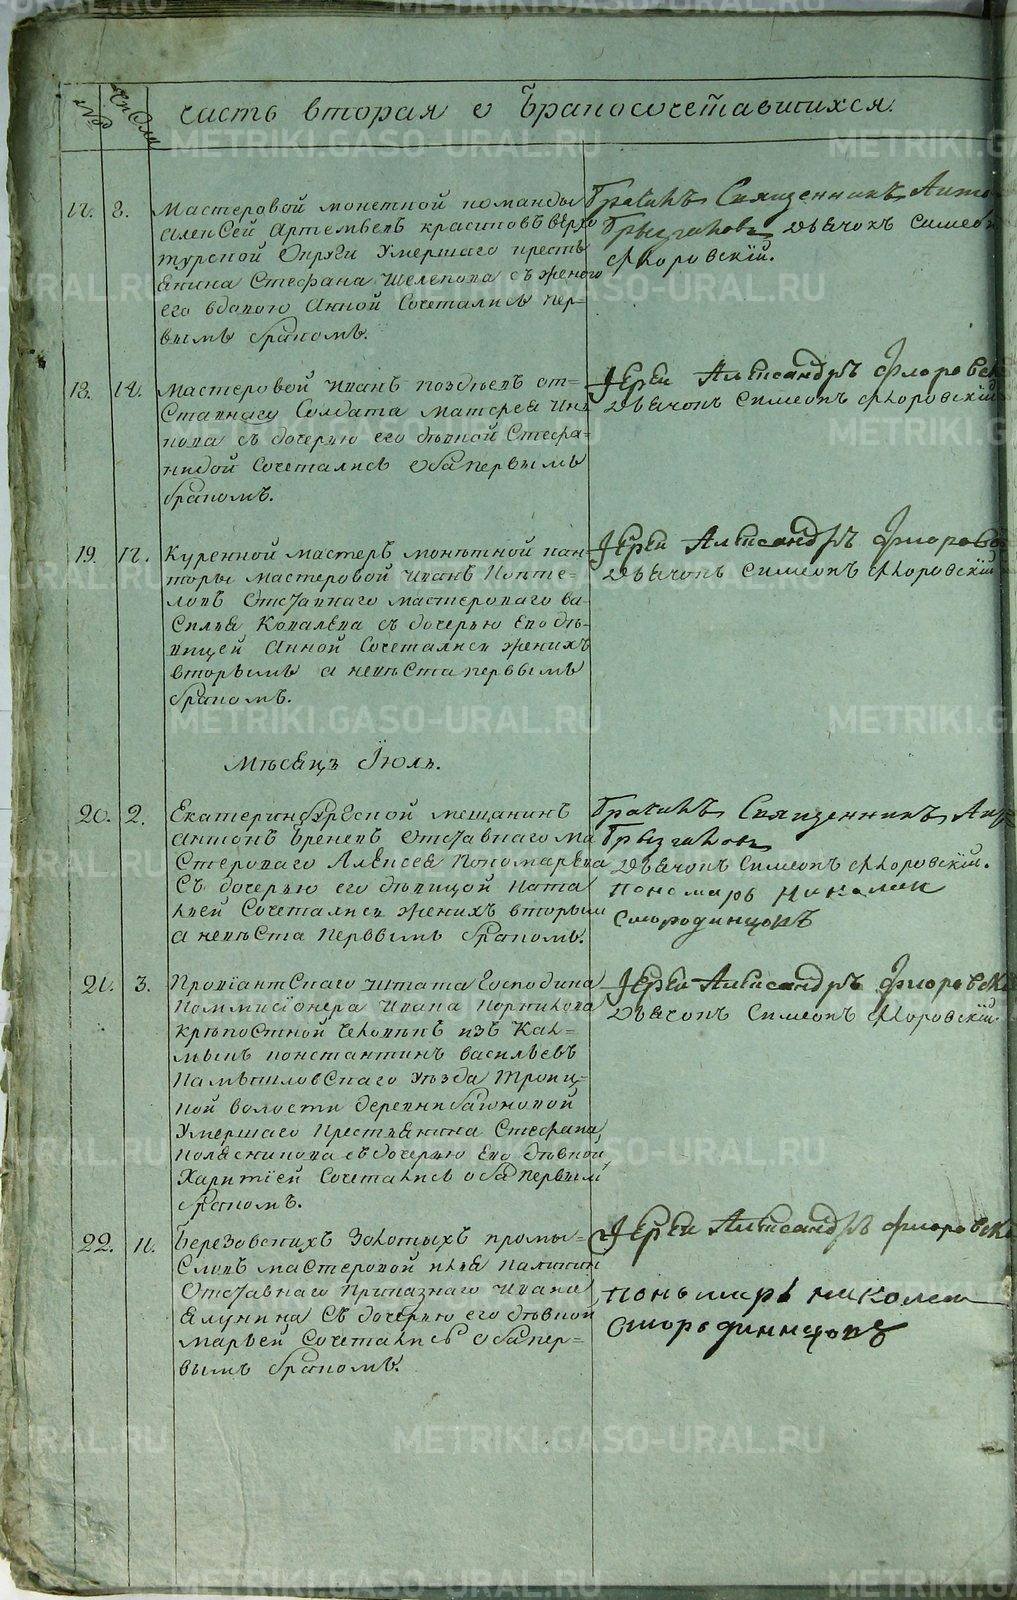 №
Числа
Часть вторая о бракосочетавшихся.
17. 8. Мастеровой монетной команды
Алексей Артемьевъ Красиковъ верхо
турской округи умершаго кресть
янина Стефана Шелепова съ женою
его вдовою Анной сочетались пер-
вымъ бракомъ.
Бралъ Священникъ Анто
Брызгаловъ дьячокъ Симеонъ
Флоровскiй.
18. 14. Мастеровой Иванъ Поздѣевъ от-
ставнаго солдата Матфея Ива
нова съ дочерью его дѣвкой Стефа-
нидой сочетались оба первымъ
бракомъ.
Iерей Александръ Флоровск
Дьячокъ Симеонъ Флоровскiй
19. 17. Куренной мастеръ монѣтной кан
торы мастеровой Иванъ Коптѣ-
ловъ отставнаго мастероваго Ва-
силья Ковалева съ дочерью его дѣ-
вицей Анной сочетались женихъ
вторымъ а невѣста первымъ
бракомъ.
Iерей Александръ Флоровс
Дьячокъ Симеонъ Флоровскiй
Мѣсяцъ Iюль.
20. 2. Екатеринбургской мещанинъ
Антонъ отставнаго ма
стероваго Алексея Пономарева
съ дочерью его дѣвицой Ната
льей сочетались женихъ вторым
а невѣста первымъ бракомъ.
Священникъ
Брызгаловъ
Дьячокъ Симеонъ Флоровскiй.
Пономарь Николай
Смородинцовъ
21. 3. Провiантскаго штата господина
Коммисiонера Ивана
крѣпостной человѣкъ изъ Кал-
мыкъ Константинъ Васильевъ
Камышловскаго уѣзда Троиц-
кой волости деревни
умершаго крестьянина Стефана
съ дочерью его дѣвкой
Харитiей сочетались оба первым
бракомъ.
Iерей Александръ Флоровск
Дьячокъ Симеонъ Флоровскiй
22. 11. Березовскихъ золотыхъ промы-
словъ мастеровой Илья Калинин
отставнаго приказнаго Ивана
Ялунина съ дочерью его дѣвкой
Марьей сочетались оба пер-
вымъ бракомъ.
Iерей Александръ Флоровск
Пономарь Николай
Смородинцовъ